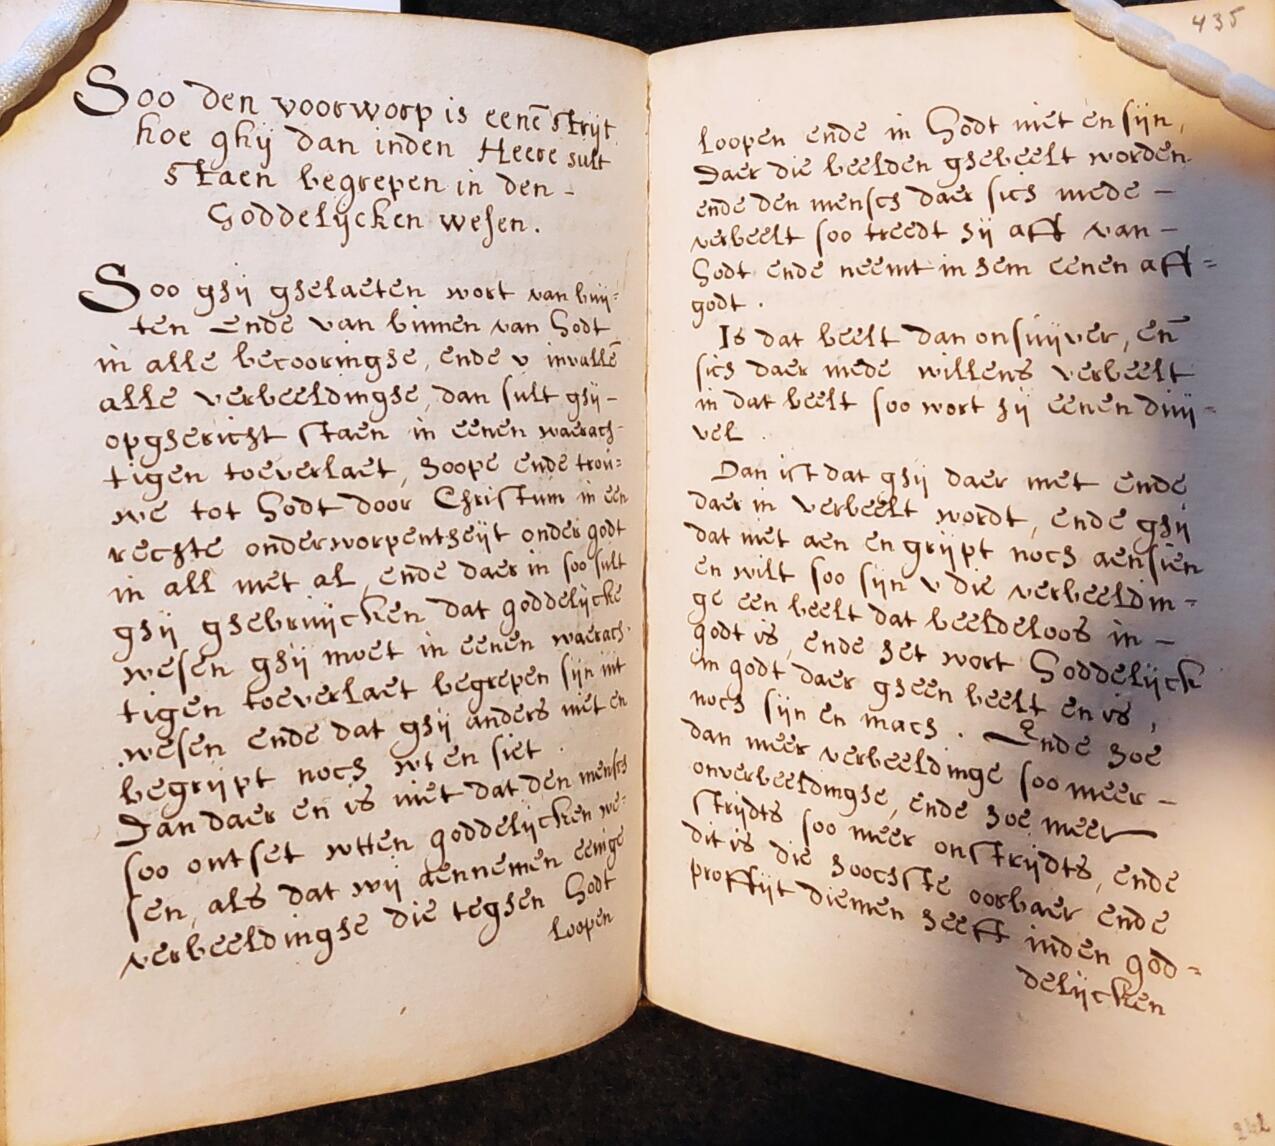 Soo den voorworp is eenē strijt
hoe ghij dan inden Heere sult
staen begrepen in den -
Goddelijcken wesen.
Soo ghij ghelaeten wort van buij=
ten Ende van binnen van Godt
in alle becooringhe, ende v invallē
alle verbeeldinghe, dan sult ghij -
opghericht staen in eenen waerach-
tigen toeverlaet, hoope ende trou=
we tot Godt door Christum in een
rechte onderworpentheijt onder godt
in all met al, ende daer in soo sult
ghij ghebruijcken dat goddelijcke
wesen ghij moet in eenen waerach-
tigen toeverlaet begrepen sijn int
wesen ende dat ghij anders niet en
begrijpt noch wten siet.
Dan daer en is niet dat den mensch
soo ontset wtten goddelijcken we=
sen, als dat wij aennemen eenige
verbeeldinghe die teghen Godt
loopen
435
loopen ende in Godt niet en sijn,
Daer die beelden ghebeelt worden
ende den mensch daer sich mede -
verbeelt soo treedt hij aff van -
Godt ende neemt in hem eenen aff=
godt.
Is dat beelt dan onsuijver, eñ
sich daer mede willens verbeelt
in dat beelt soo wort hij eenen duij=
vel.
Dan ist dat ghij daer met ende
daer in verbeelt wordt, ende ghij
dat niet aen en grijpt noch aensien
en wilt soo sijn v die verbeeldin=
ge een beelt dat beeldeloos in -
godt is, ende het wort Goddelijck
in godt daer gheen beelt en is,
noch sijn en mach. Ende hoe
dan meer verbeeldinge soo meer -
onverbeeldinghe, ende hoe meer
strijdts soo meer onstrijdts, ende
dit is die hoochste oorbaer ende
proffijt diemen heeft inden god=
delijcken